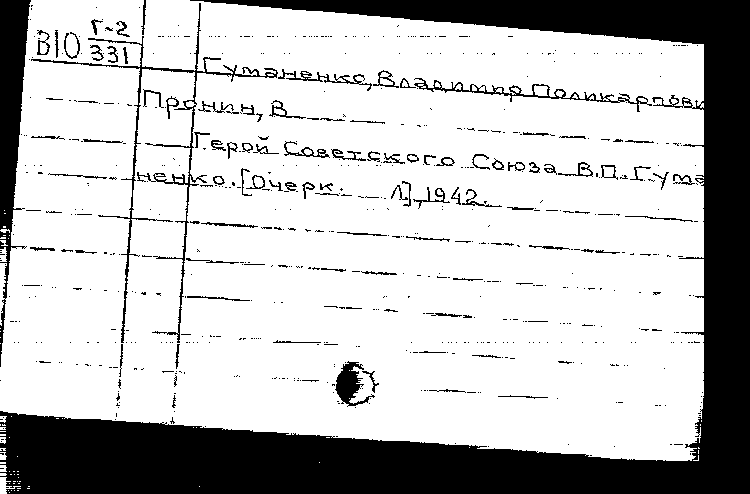 Г-2
ВІО 331
Гуманенко, Владимир Поликарпови
Пронин, В
Герой Советского Союза В.П. Гума
ненко. [Очерк. Л], 1942.